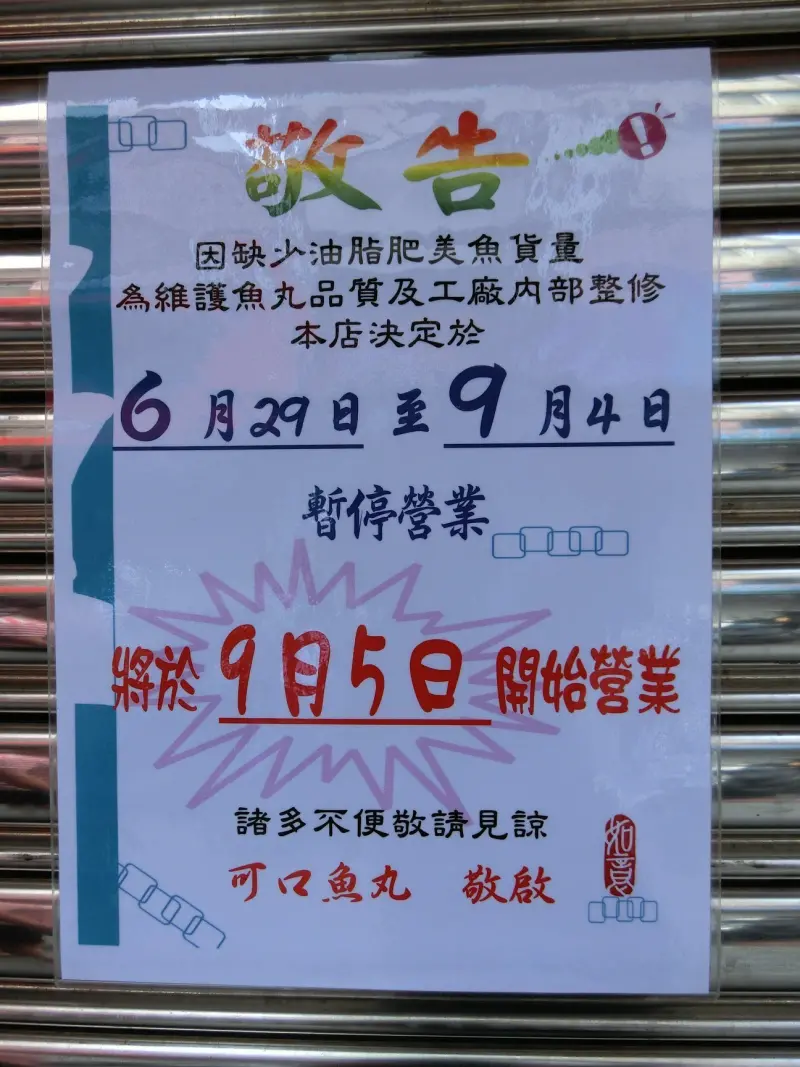 敬告
因缺少油脂肥美魚貨量
為維護魚丸品質及工廠內部整修
本店決定於
6月29日至9月4日
暫停營業
將於9月5日開始營業
諸多不便敬請見諒
可口魚丸 敬啟
如意